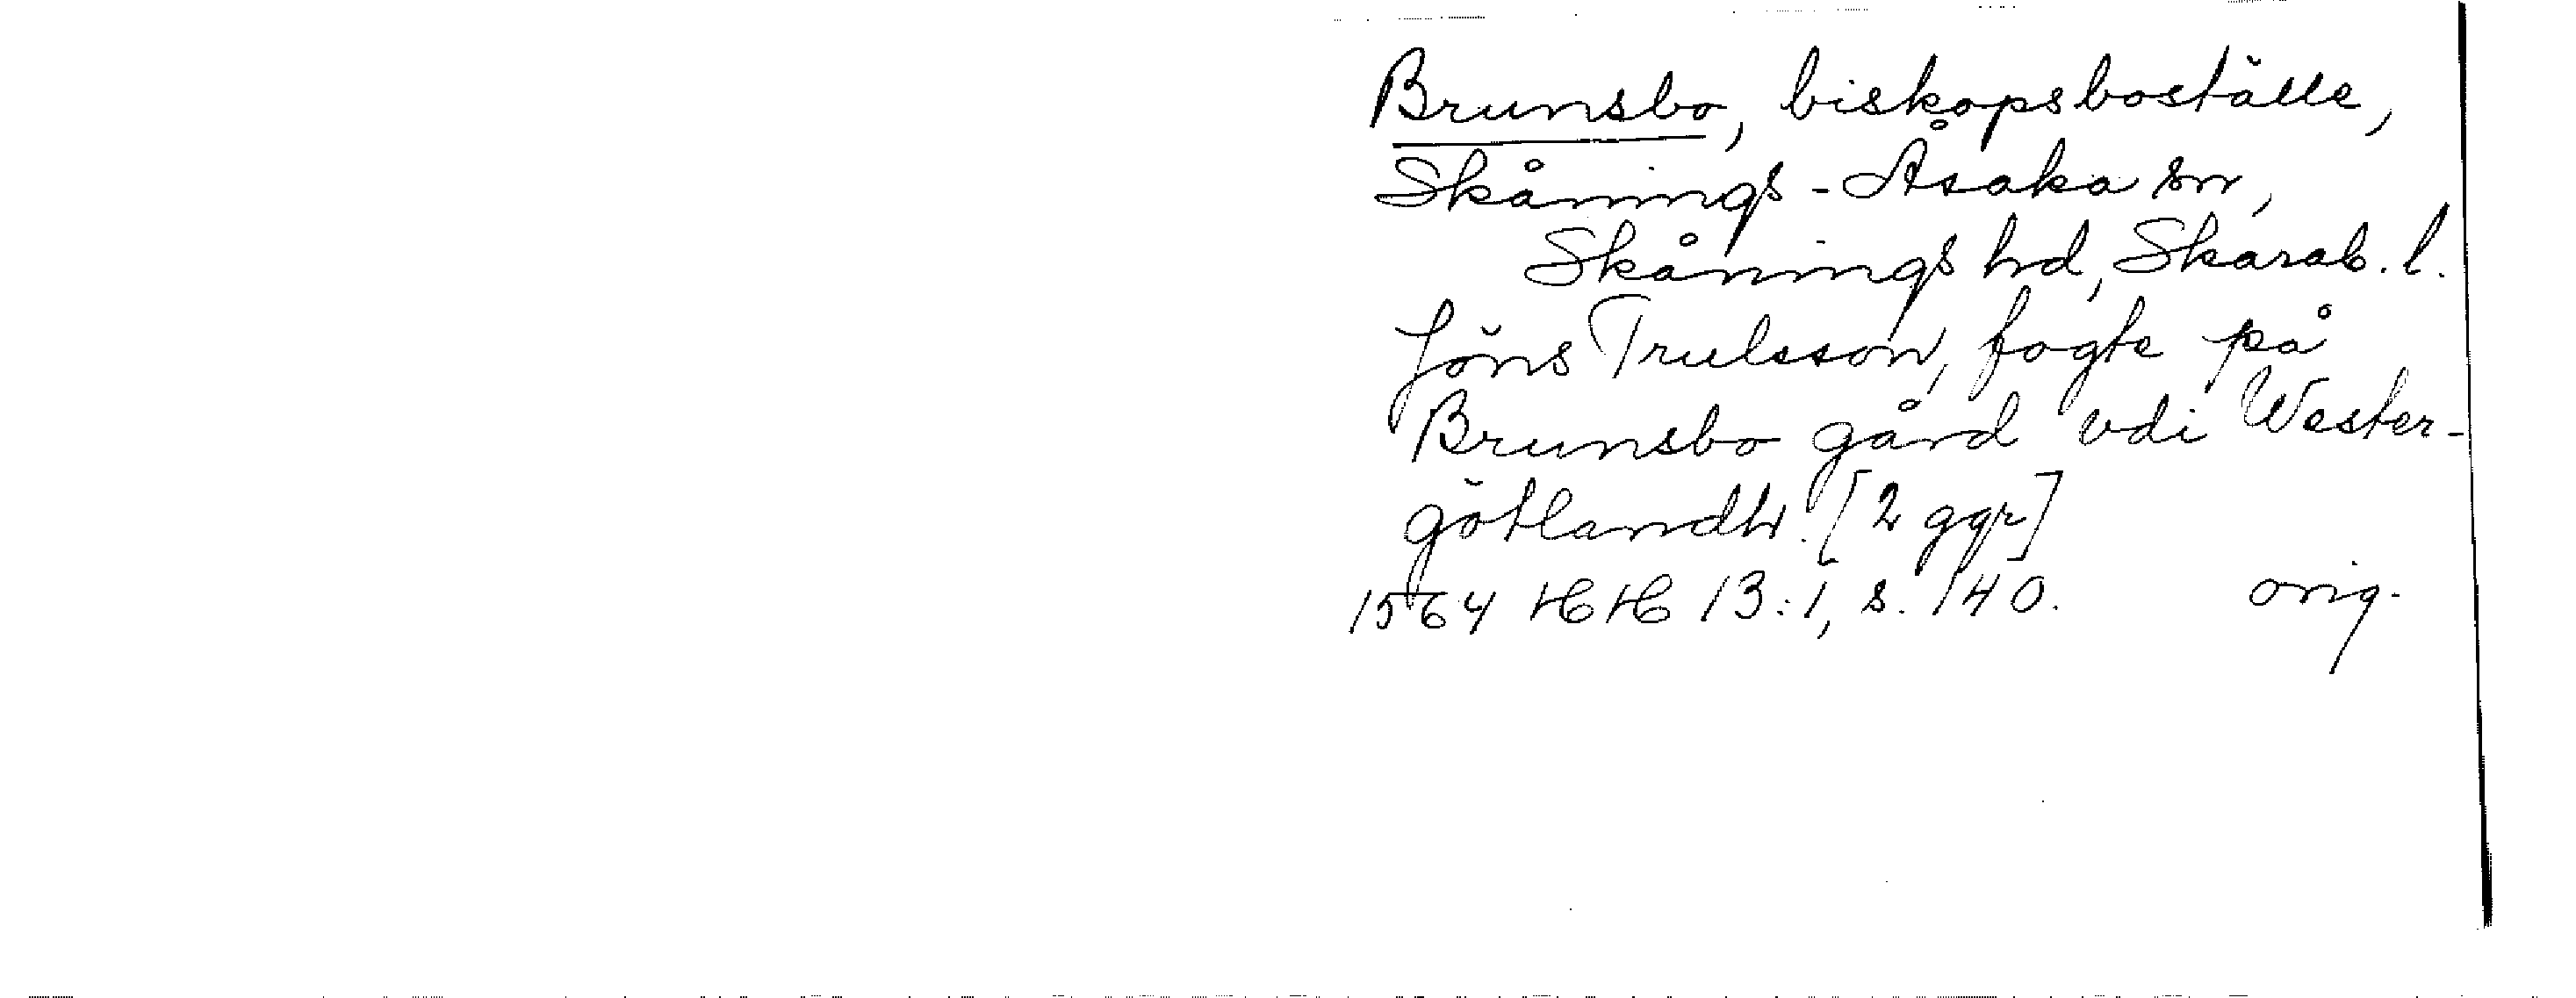 Brunsbo, biskopsboställe,
Skånings-Åsaka sn,
Skånings hd, Skarab. l.
Jöns Trulsson, fogte på
Brunsbo gård vdi Wester-
götlandh. [2 ggr]
1564 HH 13:1, s. 140. orig.